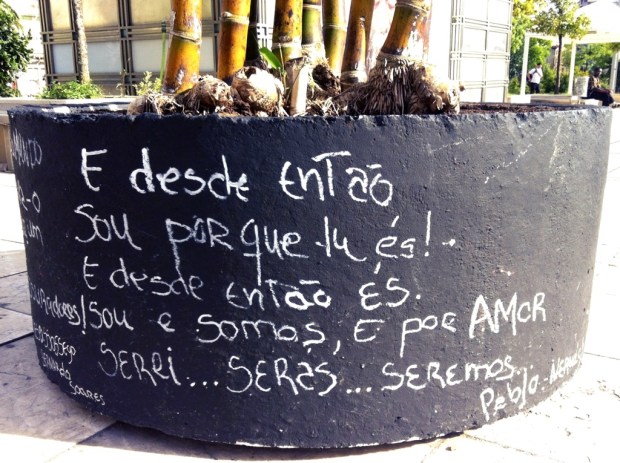 E desde ENTÃO
Sou porque tu és!
E desde ENTÃO És.
Sou e somos, E por AMOR
SEREI... SERÁS... SEREMOS.
Pablo - Neruda
SOARES